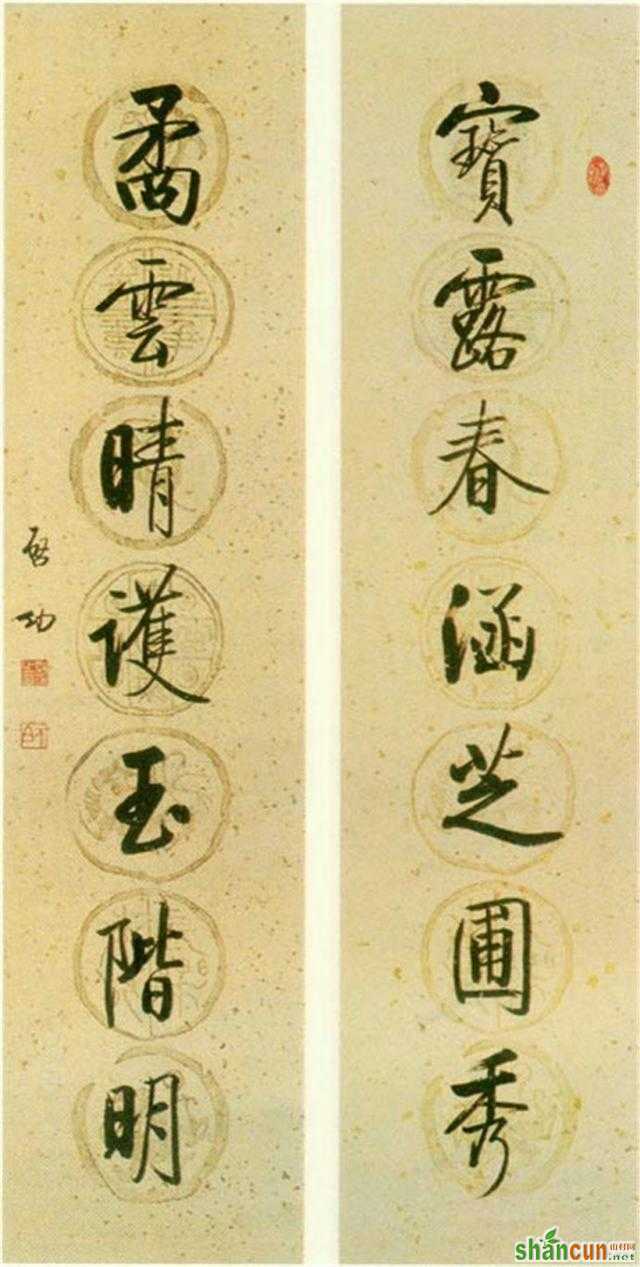 寶露春涵芝圃秀
矞雲晴護玉階明
啓功
shancun
山村网
.net